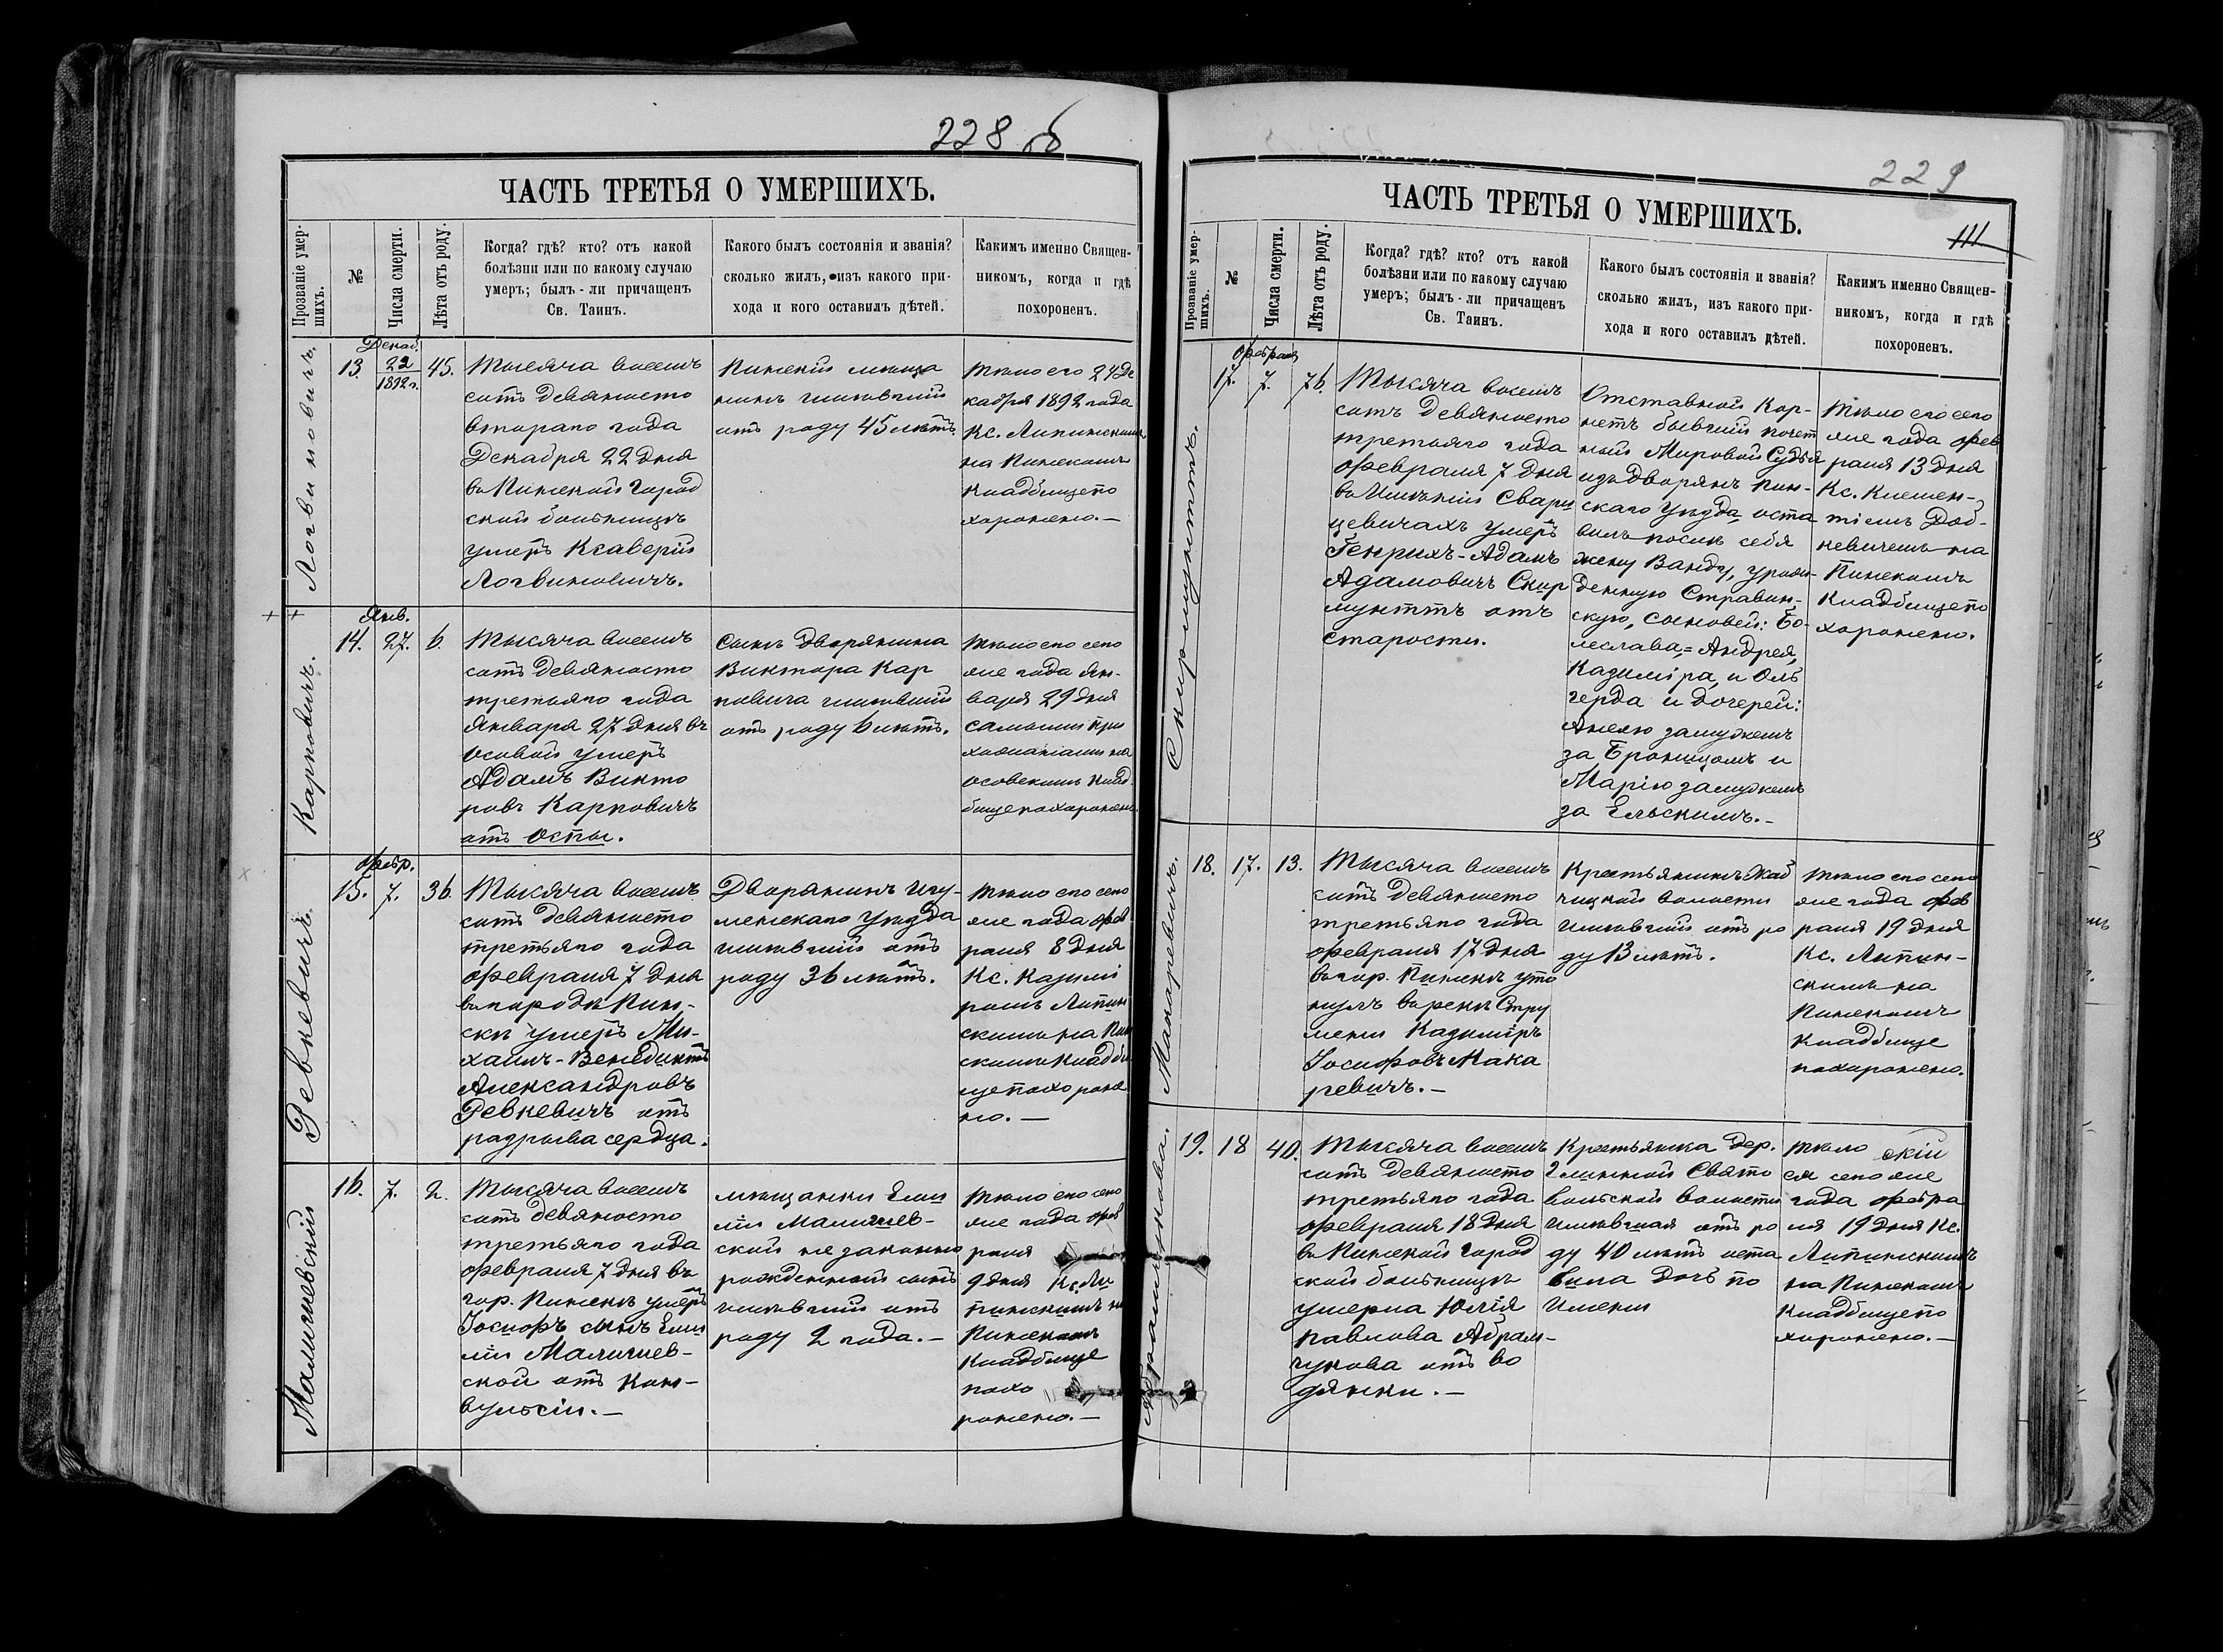 228 об
ЧАСТЬ ТРЕТЬЯ О УМЕРШИХЪ.
Прозваніе умер-
шихъ.
№
Числа смерти.
Лѣта отъ роду.
Когда? гдѣ? кто? отъ какой
болѣзни или по какому случаю
умеръ; былъ-ли причащенъ
Св. Таинъ.
Какого былъ состоянія и званія?
сколько жилъ, изъ какого при-
хода и кого оставилъ дѣтей.
Какимъ именно Священ-
никомъ, когда и гдѣ
похороненъ.
Логвиновичъ.
13.
Декаб.
22
1892 г.
45.
Тысяча восемь
сотъ девяносто
второго года
Декабря 22 дня
въ Пинской город
ской больницѣ
умеръ Ксаверій
Логвиновичъ.
Пинскій мѣща
нинъ имѣвшій
отъ роду 45 лѣтъ
Тѣло его 24 Де
кабря 1892 года
Кс. Липинскимъ
на Пинскомъ
кладбище по
хоронено.—
Карповичъ.
Янв.
14.
27.
6.
Тысяча восемь
сотъ девяносто
третьяго года
Января 27 дня въ
Осовой умеръ
Адамъ Викто
ровъ Карповичъ
отъ оспы.
Сынъ дворянина
Виктора Кар
повича имѣвшій
отъ роду 6 лѣтъ.
Тѣло его сего
же года Ян-
варя 29 дня
самыми при
хожанами на
Осовскомъ клад
бище похоронено
Ревкевичъ.
Февр.
15.
7.
36.
Тысяча восемь
сотъ девяносто
третьяго года
Февраля 7 дня
въ городѣ Пин-
скѣ умеръ Ми-
хаилъ-Венедиктъ
Александровъ
Ревкевичъ отъ
разрыва сердца.
Дворянинъ Игу-
менскаго уѣзда
имѣвшій отъ
роду 36 лѣтъ.
Тѣло его сего
же года Фев
раля 8 дня
Кс. Казимі
ромъ Липин
скимъ на Пин
скомъ кладби
ще похороне
но.—
Малишевскій
16.
7.
2.
Тысяча восемь
сотъ девяносто
третьяго года
Февраля 7 дня въ
гор. Пинскѣ умеръ
Іосифъ сынъ Эми
ліи Малишев-
ской отъ кон-
вульсіи.—
мѣщанки Эми
ліи Малишев-
ской не законно
рожденный сынъ
имѣвшій отъ
роду 2 года.—
Тѣло его сего
же года Фев
раля
9 дня Кс. Ли
пинскимъ на
Пинскомъ
кладбище
похо
ронено.—
229
111
ЧАСТЬ ТРЕТЬЯ О УМЕРШИХЪ.
Прозваніе умер-
шихъ.
№
Числа смерти.
Лѣта отъ роду.
Когда? гдѣ? кто? отъ какой
болѣзни или по какому случаю
умеръ; былъ-ли причащенъ
Св. Таинъ.
Какого былъ состоянія и званія?
сколько жилъ, изъ какого при-
хода и кого оставилъ дѣтей.
Какимъ именно Священ-
никомъ, когда и гдѣ
похороненъ.
Скирмунттъ.
Февраля
17.
7.
76.
Тысяча восемь
сотъ девяносто
третьяго года
Февраля 7 дня
въ имѣніи Свари
цевичахъ умеръ
Генрихъ-Адамъ
Адамовичъ Скир
мунттъ отъ
старости.
Отставной Кор-
нетъ бывшій почет
ный Мировой Судья
изъ дворянъ Пин-
скаго уѣзда, оста
вилъ послѣ себя
жену Ванду, урож-
денную Стравин-
скую, сыновей: Бо-
леслава=Андрея,
Казиміра, и Оль
герда и дочерей:
Анелю замужемъ
за Броницомъ и
Марію замужемъ
за Ельскимъ.—
Тѣло его сего
же года Фев
раля 13 дня
Кс. Клемен-
тіемъ Доб-
невичемъ на
Пинскомъ
кладбище по
хоронено.
Макаревичъ.
18.
17.
13.
Тысяча восемь
сотъ девяносто
третьяго года
Февраля 17 дня
въ гор. Пинскѣ уто
нулъ въ рекѣ Стру
мени Казиміръ
Іосифовъ Мака
ревичъ.—
Крестьянинъ Жаб
чицкой волости
имѣвшій отъ ро
ду 13 лѣтъ.
Тѣло его сего
же года Фев
раля 19 дня
Кс. Липин-
скимъ на
Пинскомъ
кладбище
похоронено.
Абрамчукова.
19.
18
40.
Тысяча восемь
сотъ девяносто
третьяго года
Февраля 18 дня
въ Пинской город
ской больницѣ
умерла Юлія
Павлова Абрам-
чукова отъ во
дянки.—
Крестьянка дер.
Глинной Свято
вольской волости
имѣвшая отъ ро
ду 40 лѣтъ оста
вила дочь по
имени
Тѣло
ея сего же
года Февра
ля 19 дня Кс.
Липинскимъ
на Пинскомъ
кладбище по
хоронено.—